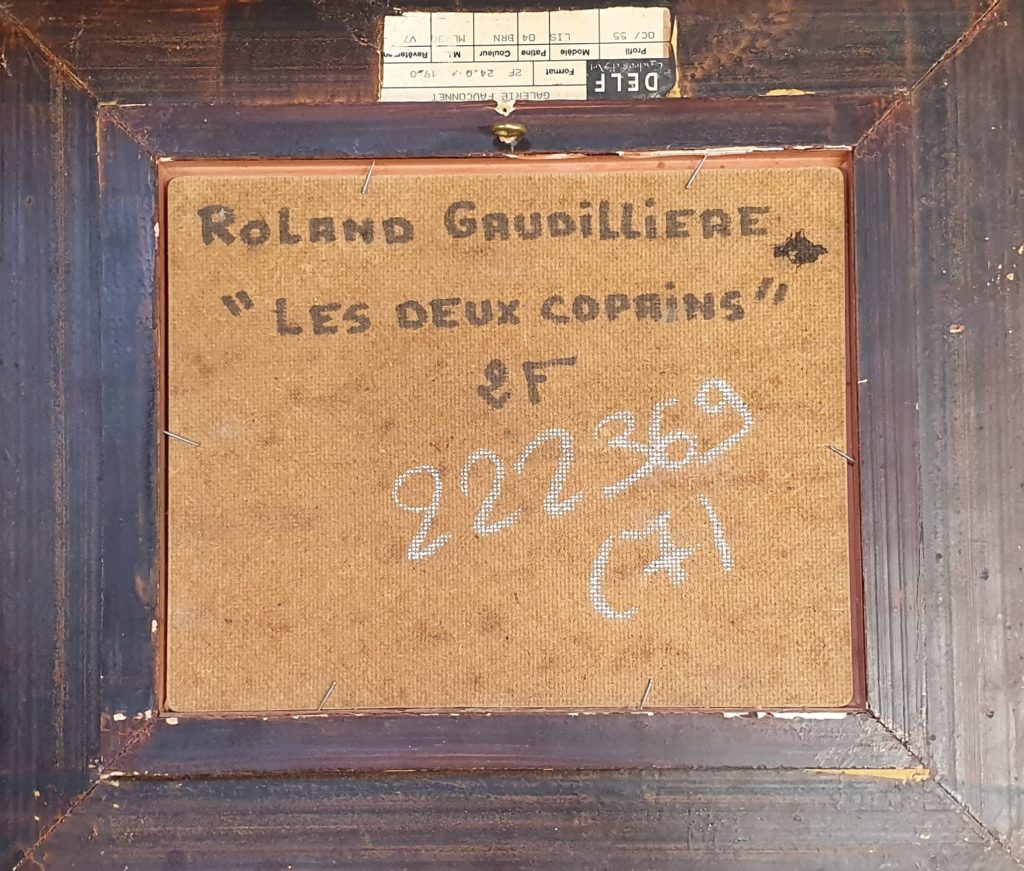 OC/ 55 LIS 04 BRN ML/30 V7
Profil Modèle Patine Couleur M.L. Revêtement
DELF Format 2F 24.0 x 19.0
GALERIE FAUCONNET
ROLAND GAUDILLIERE
"LES DEUX COPAINS"
2F
222369
(71